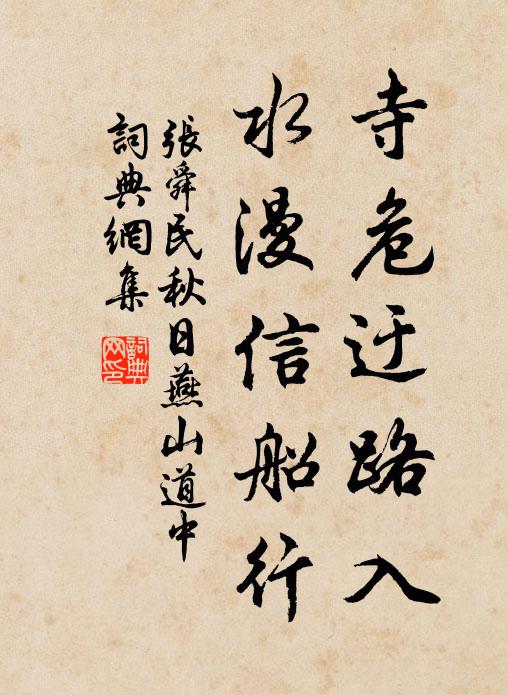 寺危迂路入
水漫信船行
張舜民秋日燕山道中
詞典網集
詞典网印